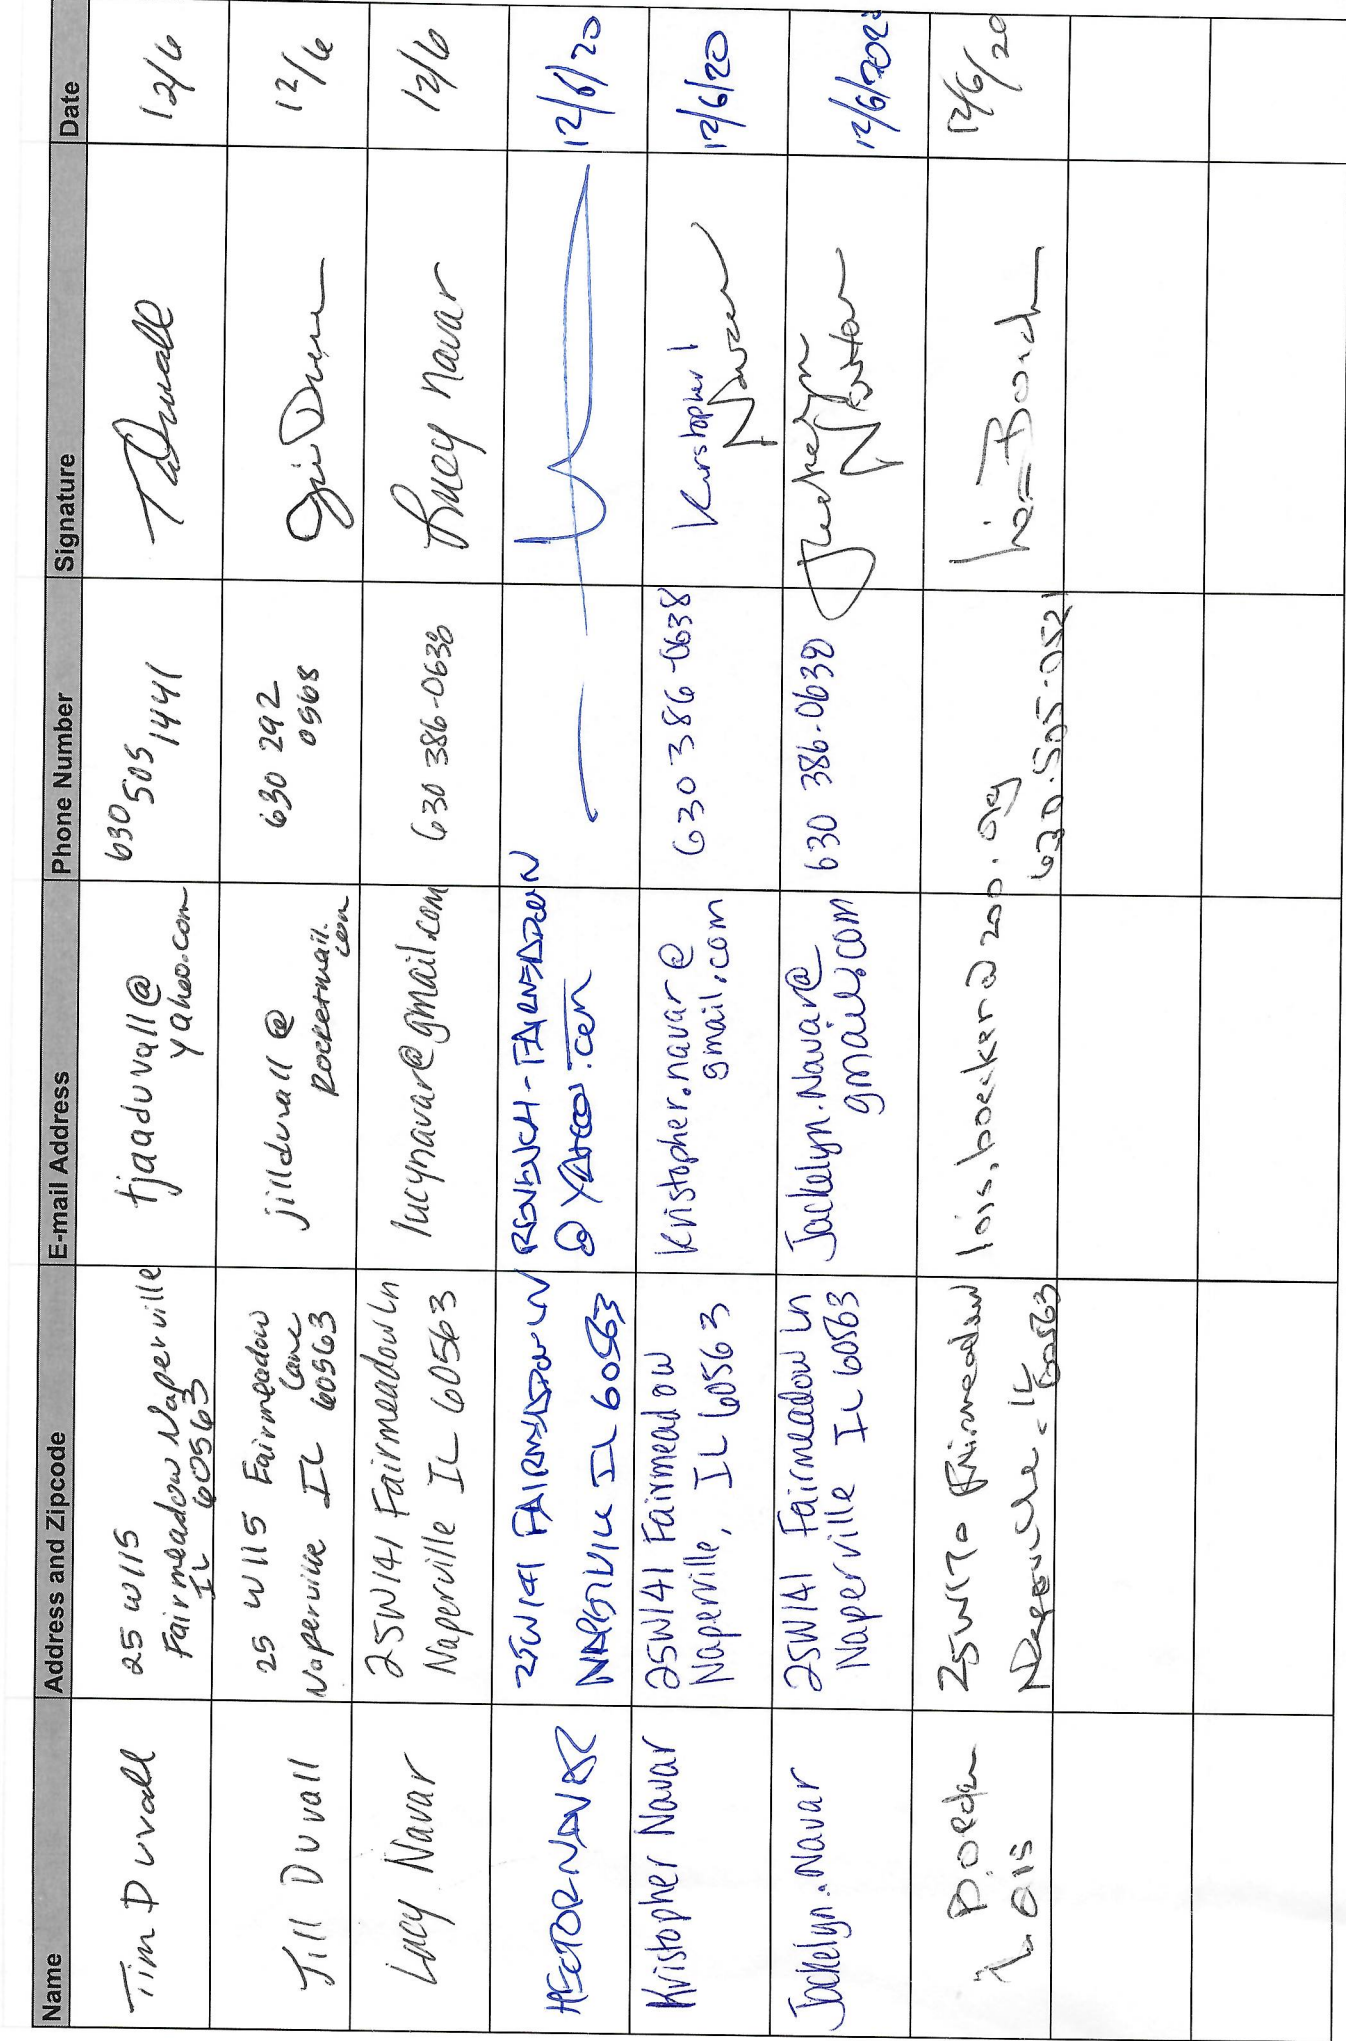 Name
Address and Zipcode
E-mail Address
Phone Number
Signature
Date
Tim Duvall
25 W115
Fairmeadow Naperville
IL 60563
tjaaduvall@
yahoo.com
630 505 1441
12/6
Jill Duvall
25 W115 Fairmeadow
Lane
Naperville IL 60563
jillduvall@
rocketmail.
com
630 292
0568
12/6
Lucy Navar
25W141 Fairmeadow Ln
Naperville IL 60563
lucynavar@gmail.com
630 386-0638
Lucy Navar
12/6
HECTOR
25W141 FAIRMEADOW LN
NAPERVILLE IL 60563
@YAHOO.COM
12/6/20
Kristopher Navar
25W141 Fairmeadow
Naperville, IL 60563
Kristopher.navar@
gmail.com
630 386-0638
Kristopher
Navar
12/6/20
Jackelyn.Navar
25W141 Fairmeadow Ln
Naperville IL 60563
Jackelyn.Navar@
gmail.com
630 386-0638
Jackelyn
Navar
12/6/202
Lois
25W170 Fairmeadow
Naperville, IL
60563
630.505.0521
12/6/20